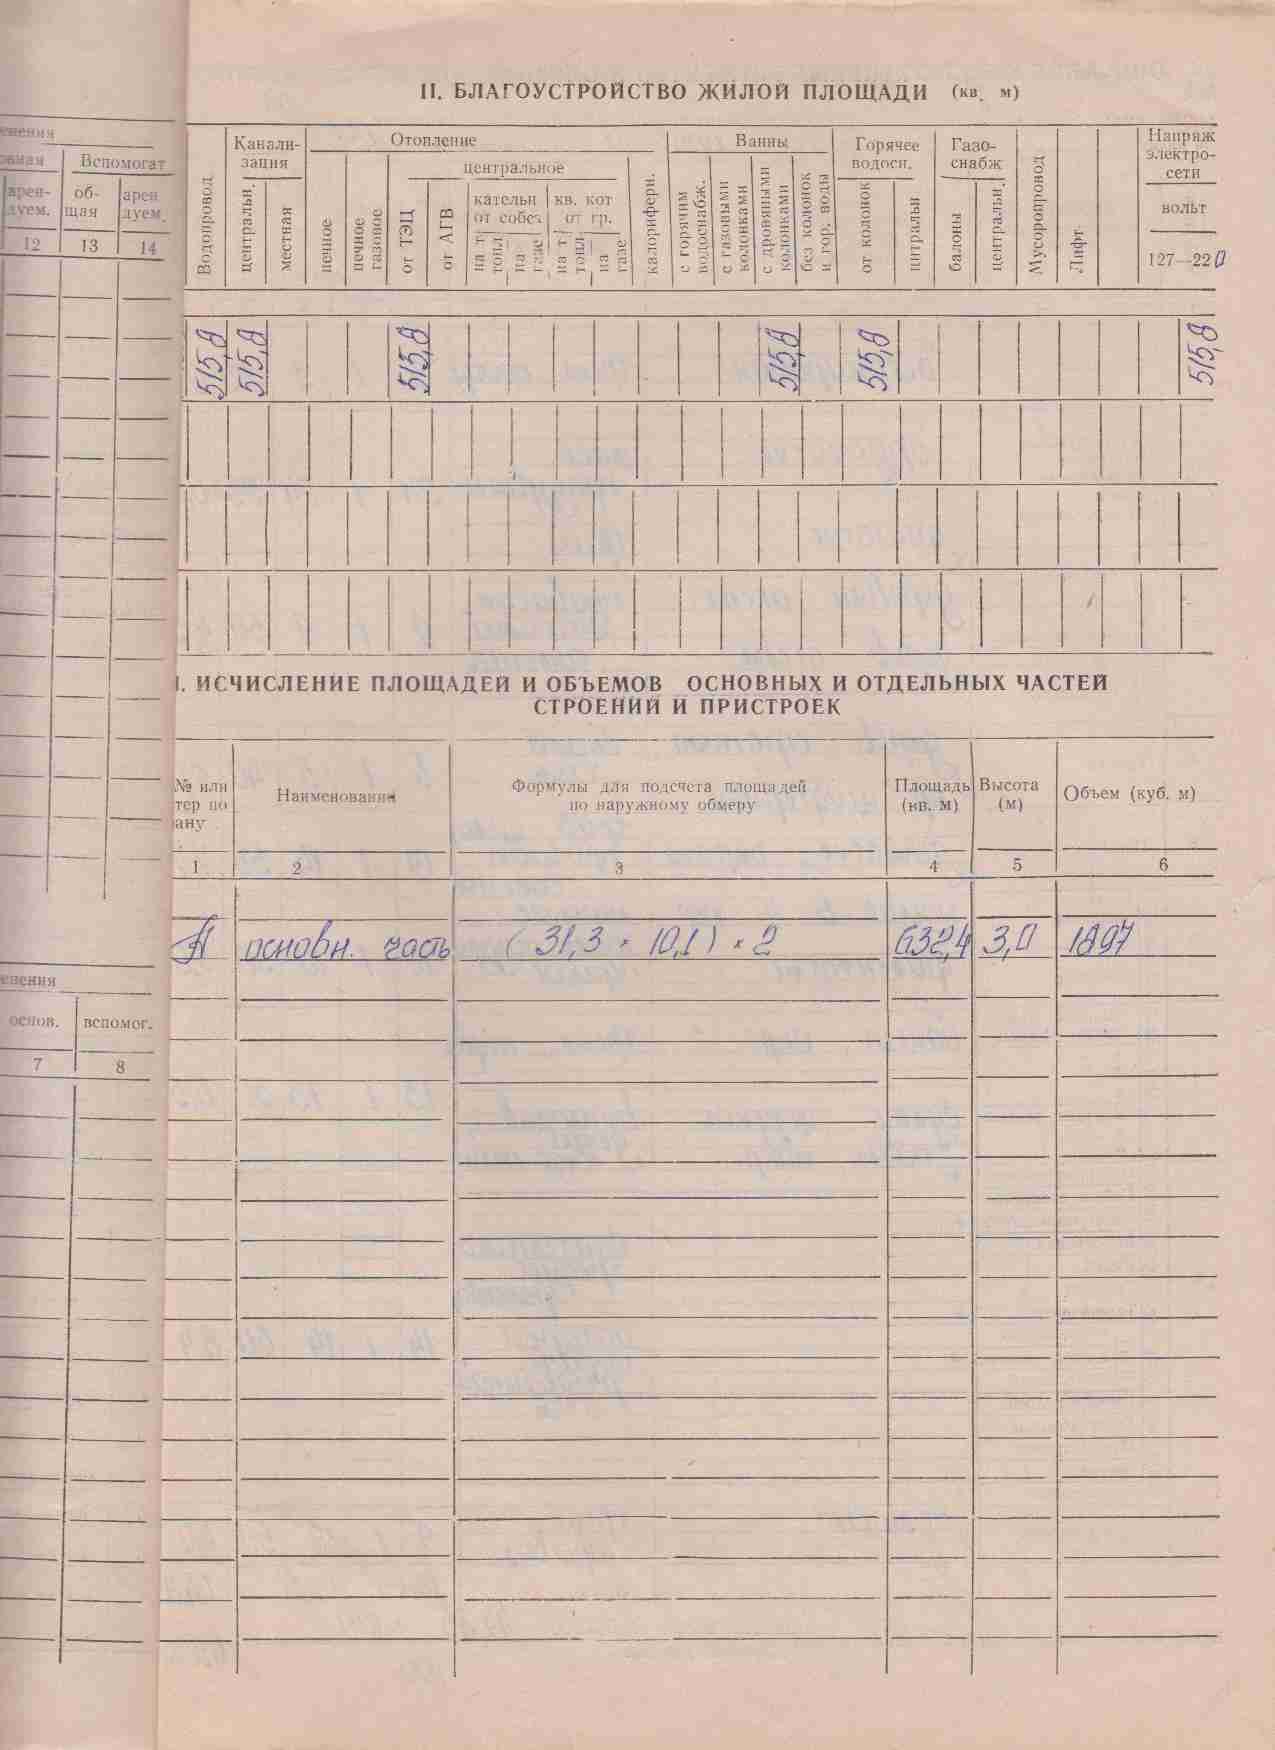 II. БЛАГОУСТРОЙСТВО ЖИЛОЙ ПЛОЩАДИ (кв. м)
Вспомогат
арен-
дуем.
об-
щая
арен
дуем.
12 13 14
Водопровод
Канали-
зация
центральн.
местная
Отопление
печное
печное
газовое
центральное
от ТЭЦ
от АГВ
кательн
от собств
на т
топл
на
газе
кв. кот
от гр.
на т
топл
на
газе
калориферн.
Ванны
с горячим
водоснабж.
с газовыми
колонками
с дровяными
колонками
без колонок
и гор. воды
Горячее
водосн.
от колонок
центральн
Газо-
снабж
балоны
центральн.
Мусоропровод
Лифт.
Напряж
электро-
сети
вольт
127—220
515,8 515,8 515,8 515,8 515,8 515,8
I. ИСЧИСЛЕНИЕ ПЛОЩАДЕЙ И ОБЪЕМОВ ОСНОВНЫХ И ОТДЕЛЬНЫХ ЧАСТЕЙ
СТРОЕНИЙ И ПРИСТРОЕК
№ или
тер по
ану
Наименование
Формулы для подсчета площадей
по наружному обмеру
Площадь
(кв. м)
Высота
(м)
Объем (куб. м)
1 2 3 4 5 6
А основн. часть (31,3 × 10,1) × 2 632,4 3,0 1897
енения
основ. вспомог.
7 8